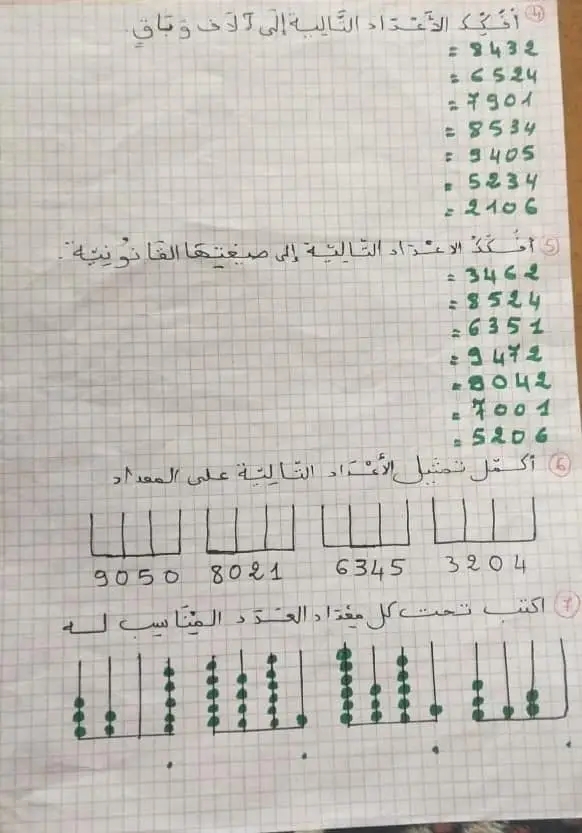 4) أفكّك الأعْداد التَّالية إلى آلاف وَ بَاقٍ.
8432 =
6524 =
7901 =
8534 =
9405 =
5234 =
2106 =
5) أفكّكُ الاعْداد التّاليّة إلى صيغتِها القانُونيّة.
3462 =
8524 =
6351 =
9472 =
8042 =
7001 =
5206 =
6) أكمّل تمثيل الأعْداد التّاليّة على المعداد
9050 8021 6345 3204
7) اكتب تحت كل مِعْداد العَدَد المُنَاسِب له